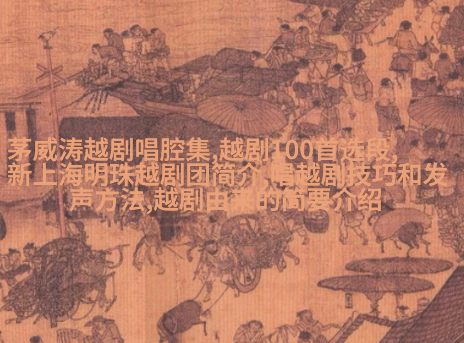 茅威涛越剧唱腔集,越剧100首选段,
新上海明珠越剧团简介,唱越剧技巧和发
声方法,越剧由来的简要介绍